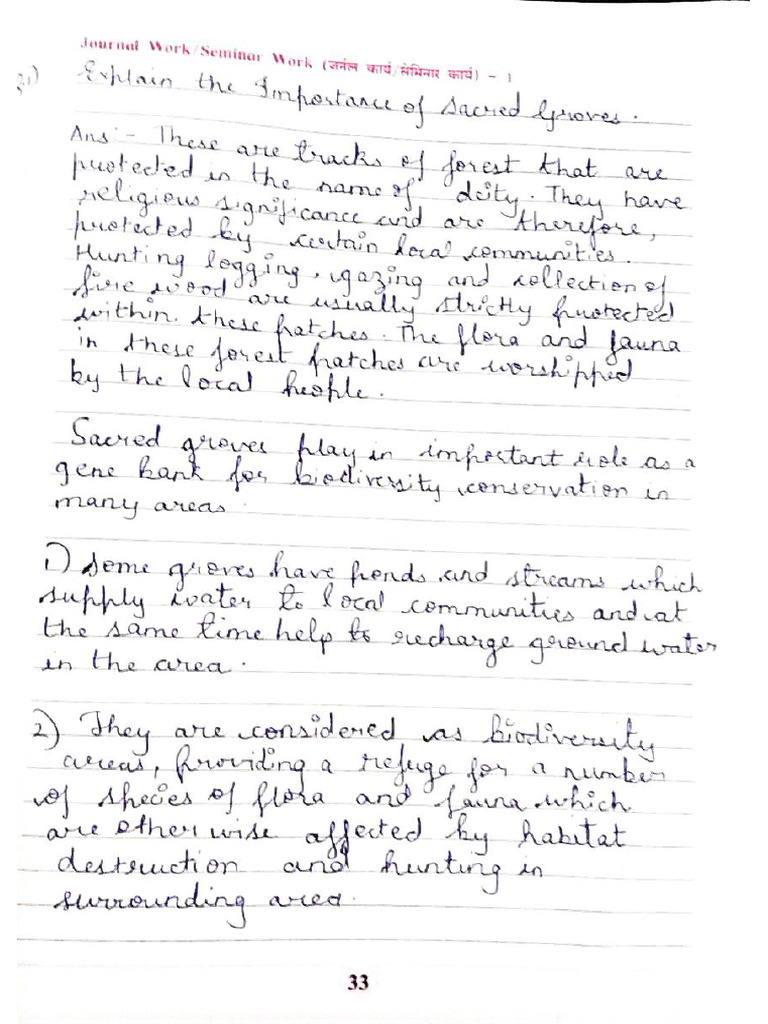 Journal Work/Seminar Work (जर्नल कार्य/सेमिनार कार्य) - 1
Q.1) Explain the Importance of Sacred Groves.
Ans :- These are tracks of forest that are
protected in the name of deity. They have
religious significance and are therefore,
protected by certain local communities.
Hunting logging, gazing and collection of
fire wood are usually strictly protected
within these patches. The flora and fauna
in these forest patches are worshipped
by the local people.
Sacred groves play in important role as a
gene bank for biodiversity conservation in
many areas.
1) Some groves have ponds and streams which
supply water to local communities and at
the same time help to recharge ground water
in the area.
2) They are considered as biodiversity
areas, providing a refuge for a number
of species of flora and fauna which
are otherwise affected by habitat
destruction and hunting in
surrounding area.
33